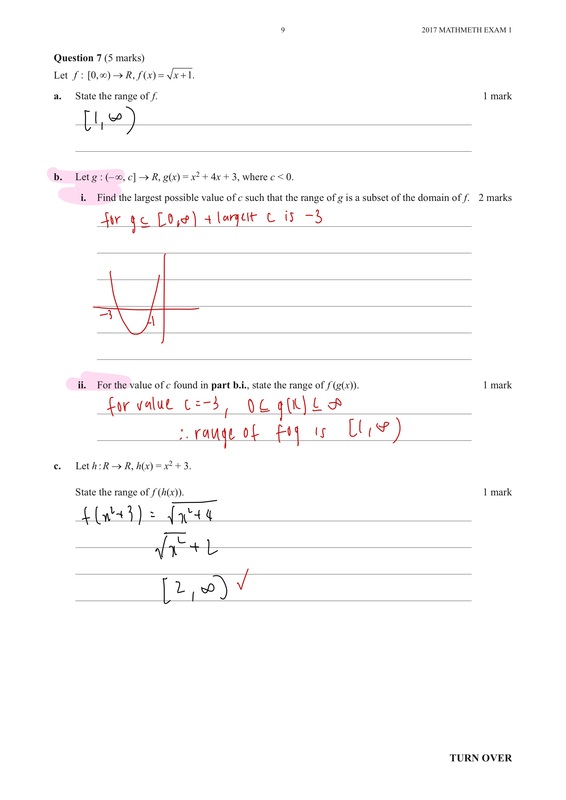 9 2017 MATHMETH EXAM 1
Question 7 (5 marks)
Let f : [0, ∞) → R, f(x) = √(x+1).
a. State the range of f. 1 mark
[1, ∞)
b. Let g : (−∞, c] → R, g(x) = x² + 4x + 3, where c < 0.
i. Find the largest possible value of c such that the range of g is a subset of the domain of f. 2 marks
for g ⊆ [0, ∞) + largest c is −3
−3 −1
ii. For the value of c found in part b.i., state the range of f(g(x)). 1 mark
for value c = −3, 0 ≤ g(x) ≤ ∞
∴ range of fog is [1, ∞)
c. Let h : R → R, h(x) = x² + 3.
State the range of f(h(x)). 1 mark
f(x²+3) = √(x²+4)
√(x²) + 2
[2, ∞) ✓
TURN OVER